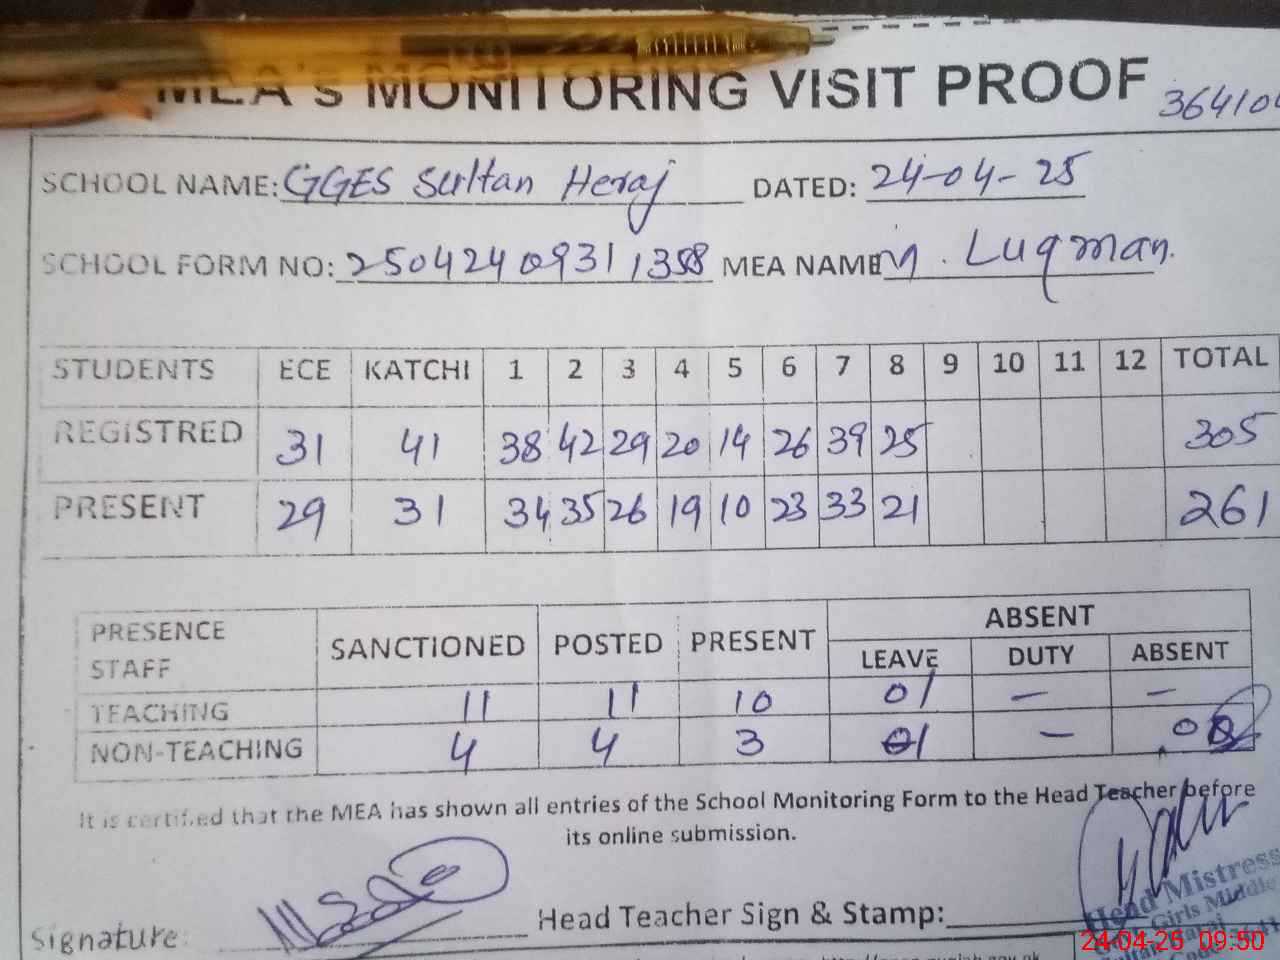 MEA's MONITORING VISIT PROOF 36410
SCHOOL NAME: GGES Sultan Heraj DATED: 24-04-25
SCHOOL FORM NO: 25042409311358 MEA NAME M. Luqman.
STUDENTS ECE KATCHI 1 2 3 4 5 6 7 8 9 10 11 12 TOTAL
REGISTRED 31 41 38 42 29 20 14 26 39 25 305
PRESENT 29 31 34 35 26 19 10 23 33 21 261
ABSENT
PRESENCE STAFF SANCTIONED POSTED PRESENT LEAVE DUTY ABSENT
TEACHING 11 11 10 01 — —
NON-TEACHING 4 4 3 01 —
It is certified that the MEA has shown all entries of the School Monitoring Form to the Head Teacher before
its online submission.
Signature: Head Teacher Sign & Stamp:
Head Mistress
Girls Middle
24-04-25 09:50